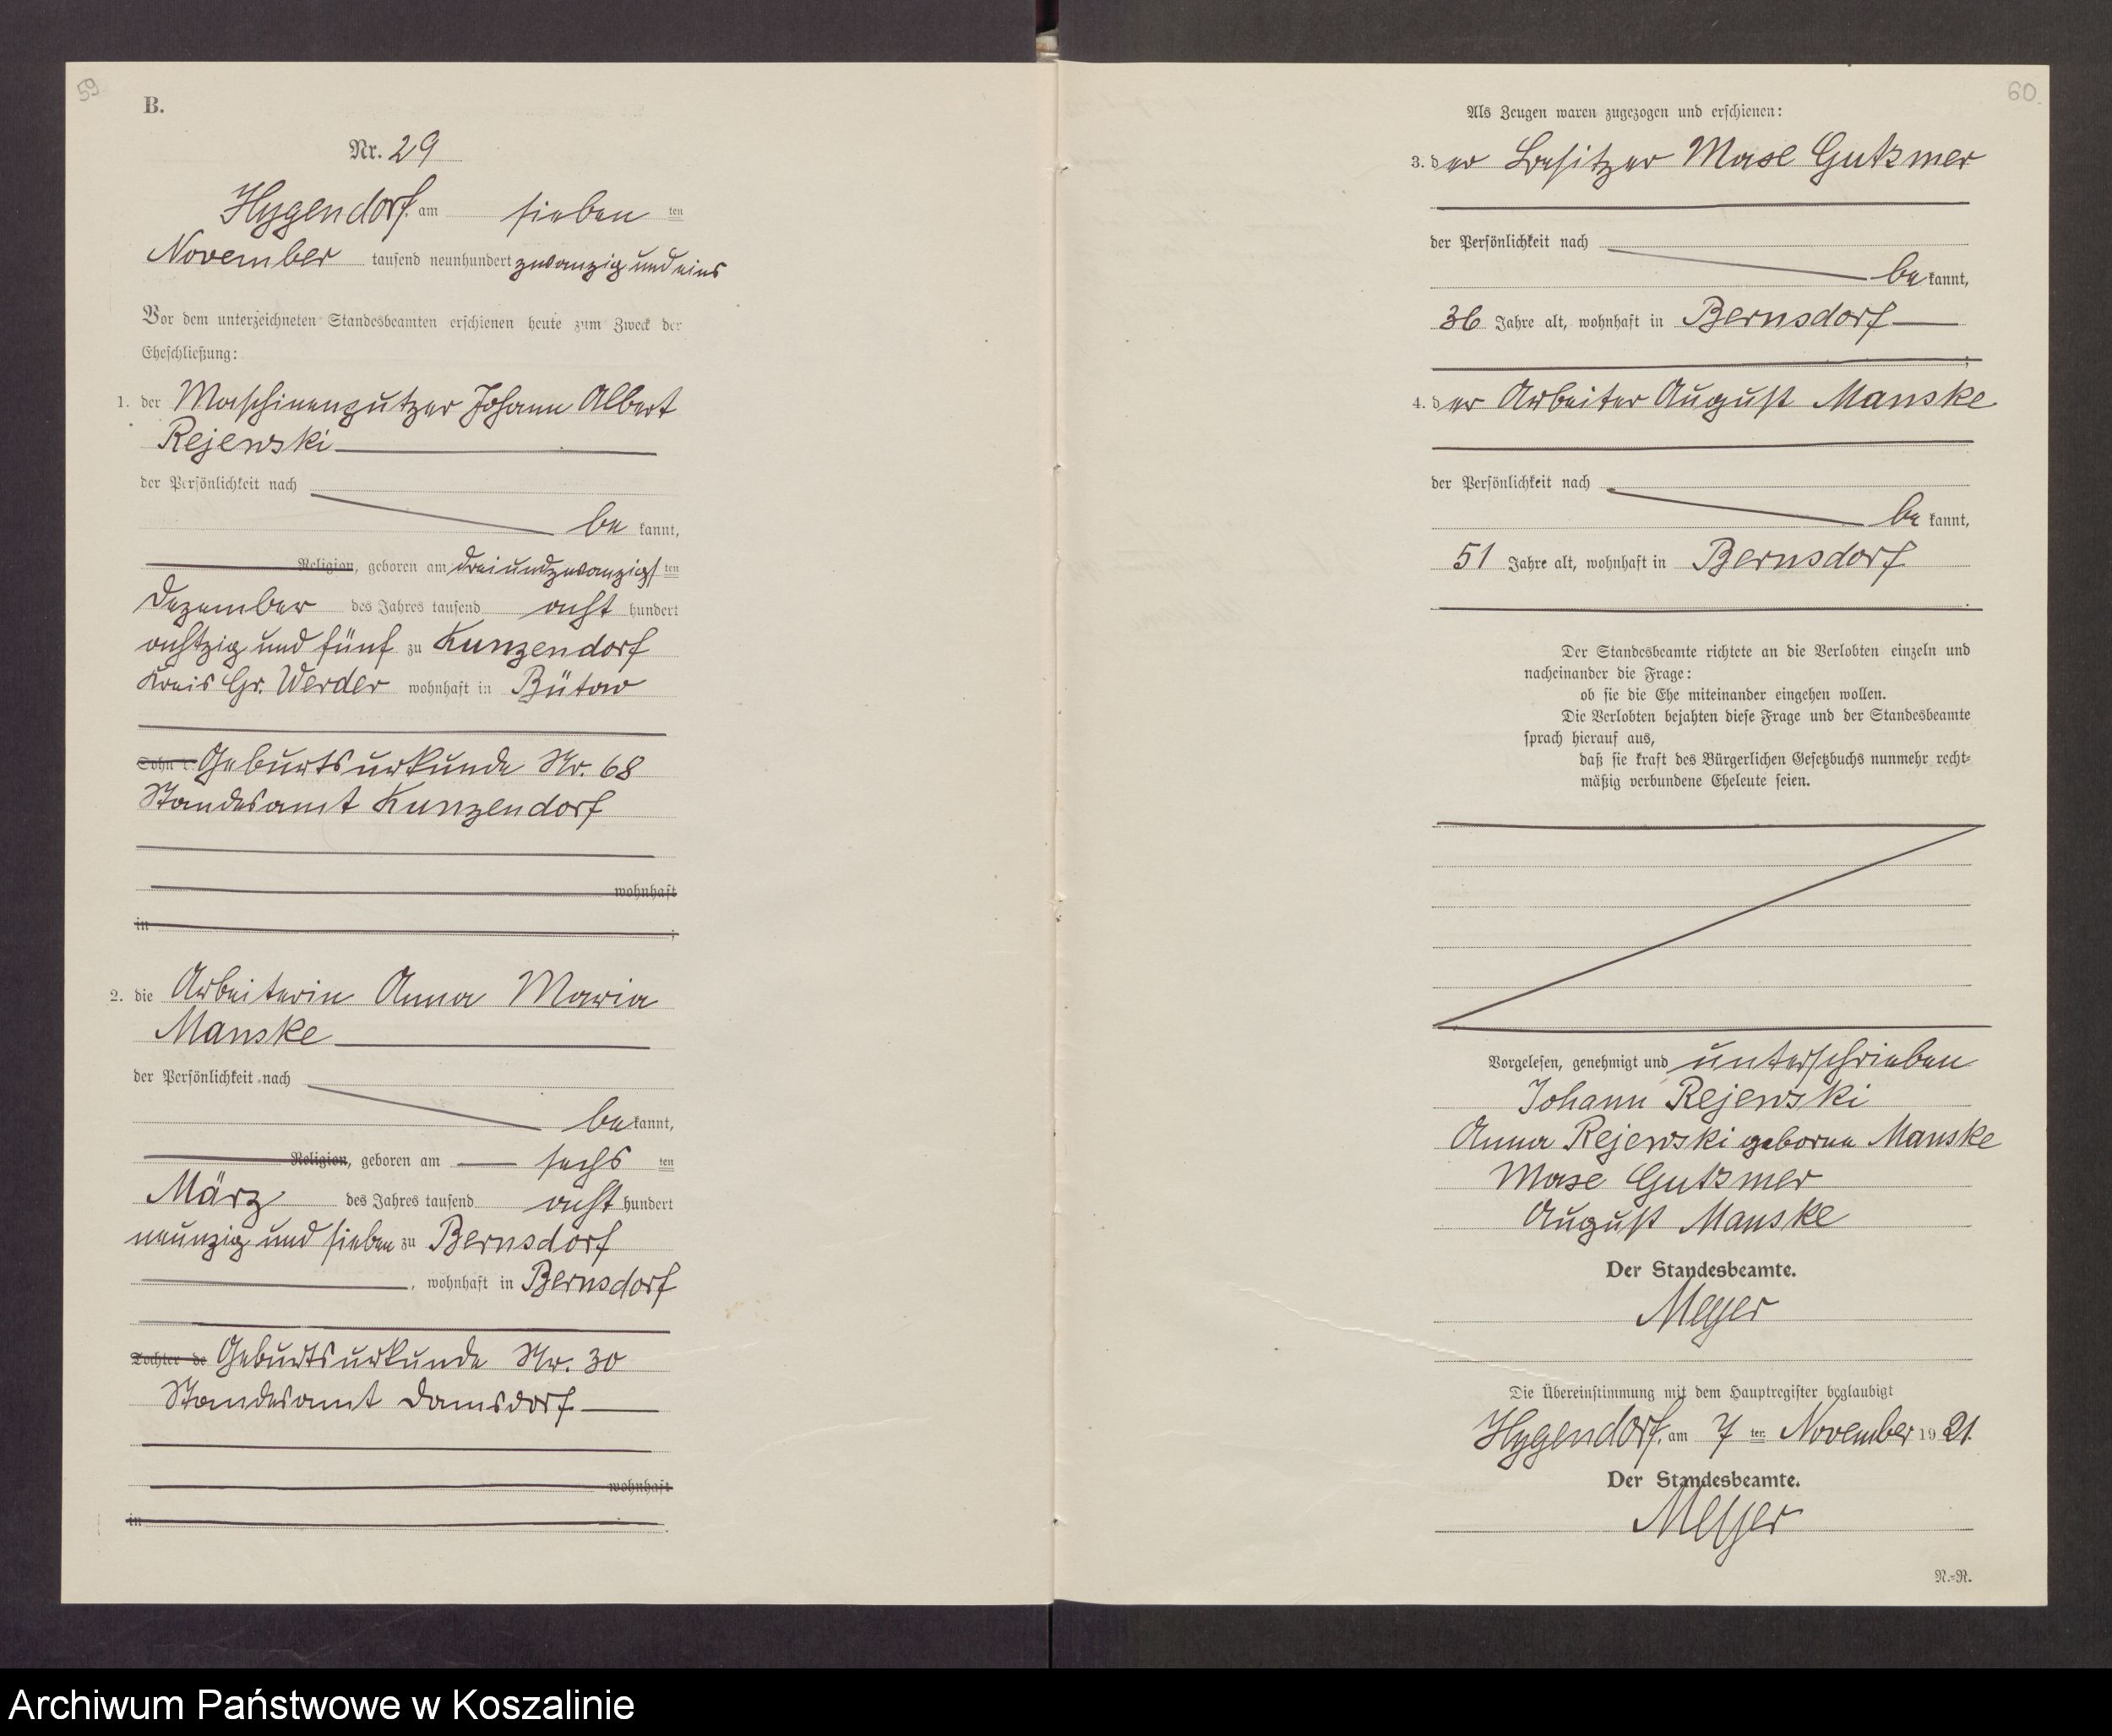 59
B.
Nr. 29
Hygendorf, am sieben ten
November tausend neunhundert zwanzig und eins
Vor dem unterzeichneten Standesbeamten erschienen heute zum Zweck der
Eheschließung:
1. der Maschinenputzer Johann Albert
Rejewski
der Persönlichkeit nach
be kannt,
Religion, geboren am dreiundzwanzigs ten
Dezember des Jahres tausend acht hundert
achtzig und fünf zu Kunzendorf
Kreis Gr. Werder wohnhaft in Bütow
Sohn d. Geburtsurkunde Nr. 68
Standesamt Kunzendorf
wohnhaft
in ;
2. die Arbeiterin Anna Maria
Manske
der Persönlichkeit nach
be kannt,
Religion, geboren am sechs ten
März des Jahres tausend acht hundert
neunzig und sieben zu Bernsdorf
, wohnhaft in Bernsdorf
Tochter de Geburtsurkunde Nr. 30
Standesamt Damsdorf
wohnhaft
in .
60.
Als Zeugen waren zugezogen und erschienen:
3. der Besitzer Maxe Gutzmer
der Persönlichkeit nach
be kannt,
36 Jahre alt, wohnhaft in Bernsdorf
;
4. der Arbeiter August Manske
der Persönlichkeit nach
be kannt,
51 Jahre alt, wohnhaft in Bernsdorf
.
Der Standesbeamte richtete an die Verlobten einzeln und
nacheinander die Frage:
ob sie die Ehe miteinander eingehen wollen.
Die Verlobten bejahten diese Frage und der Standesbeamte
sprach hierauf aus,
daß sie kraft des Bürgerlichen Gesetzbuchs nunmehr recht-
mäßig verbundene Eheleute seien.
Vorgelesen, genehmigt und unterschrieben
Johann Rejewski
Anna Rejewski geborne Manske
Maxe Gutzmer
August Manske
Der Standesbeamte.
Meyer
Die Übereinstimmung mit dem Hauptregister beglaubigt
Hygendorf, am 7 ten November 19 21.
Der Standesbeamte.
Meyer
N.-R.
Archiwum Państwowe w Koszalinie